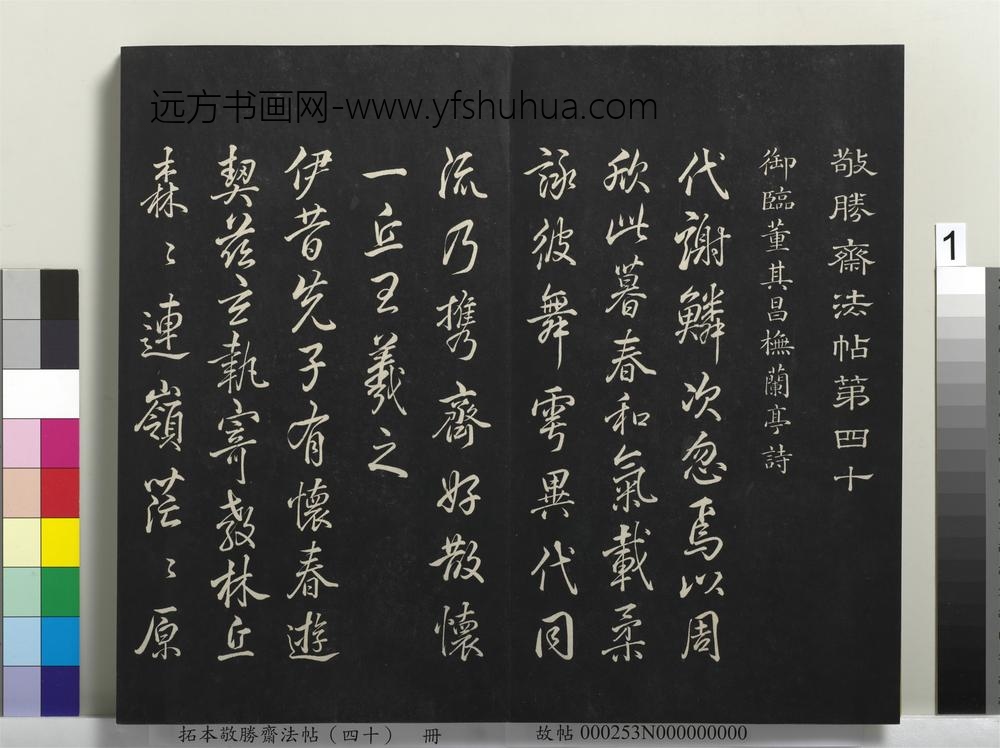 远方书画网-www.yfshuhua.com
敬勝齋法帖第四十
御臨董其昌橅蘭亭詩
代謝鱗次忽焉以周
欣此暮春和氣載柔
詠彼舞雩異代同
流乃携齊好散懷
一丘王羲之
伊昔先子有懷春遊
契茲言執寄敖林丘
森〻連嶺茫〻原
1
拓本敬勝齋法帖(四十) 冊
故帖 000253N000000000